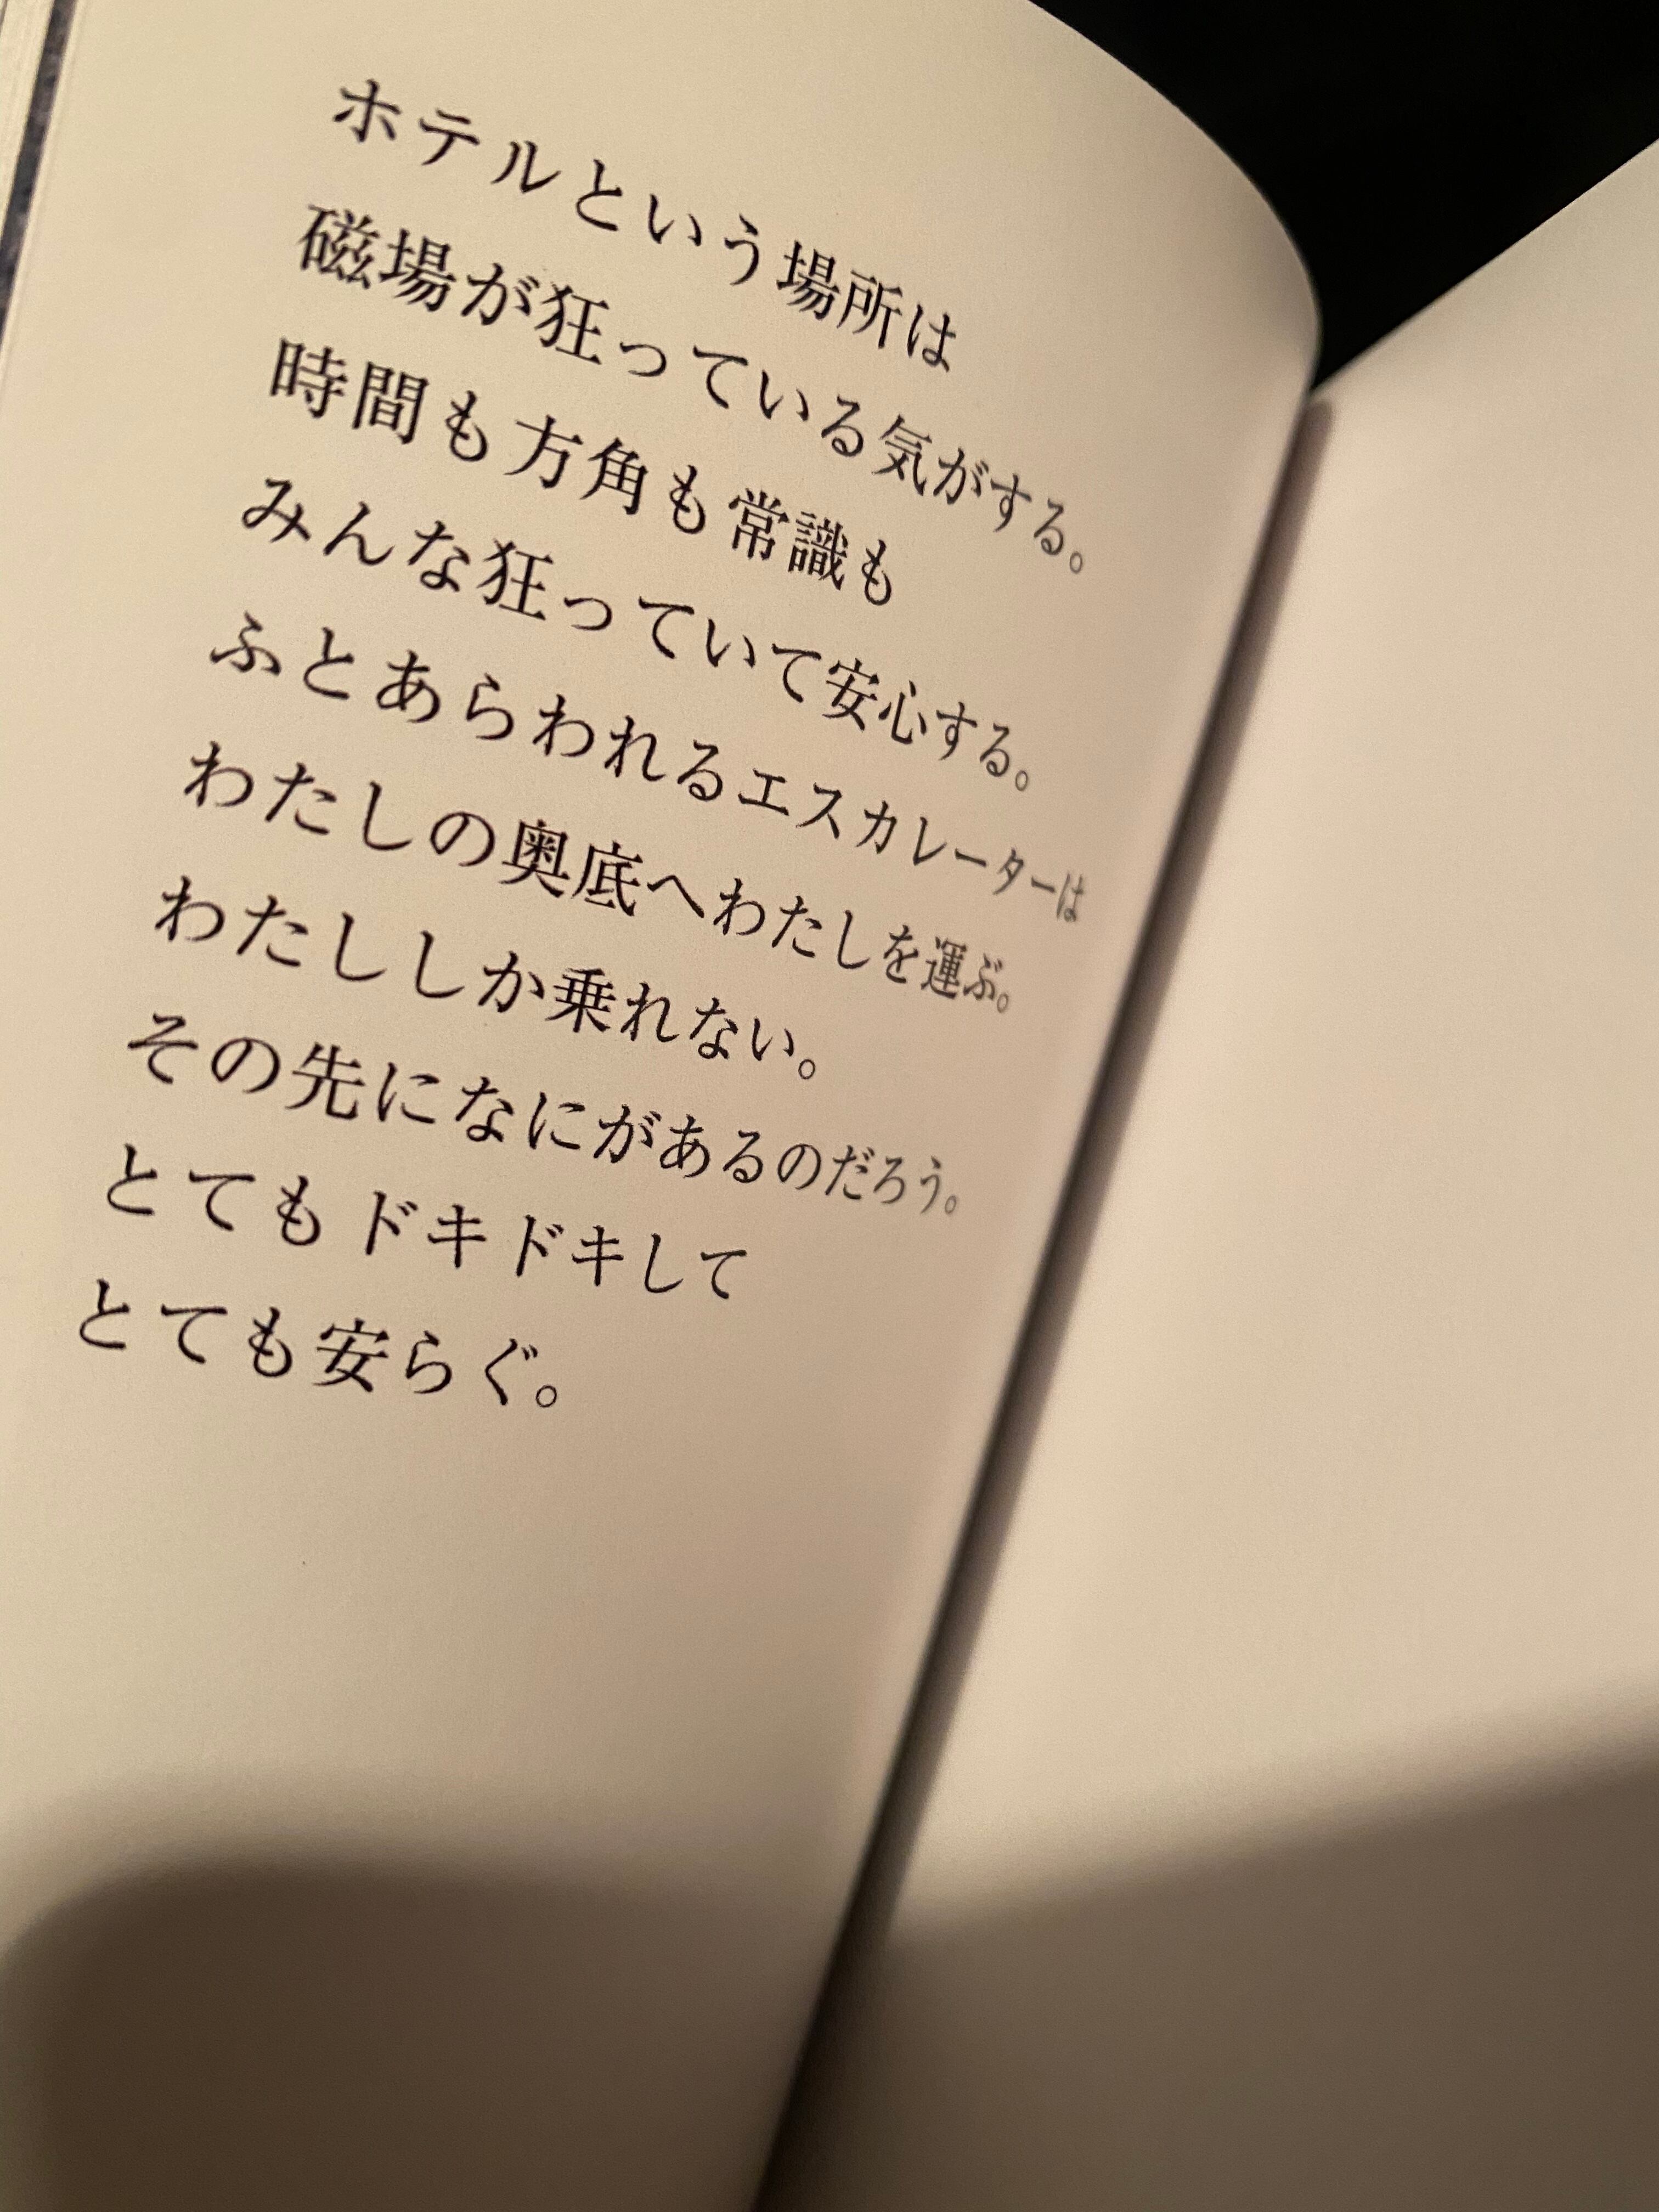 ホテルという場所は
磁場が狂っている気がする。
時間も方角も常識も
みんな狂っていて安心する。
ふとあらわれるエスカレーターは
わたしの奥底へわたしを運ぶ。
わたししか乗れない。
その先になにがあるのだろう。
とてもドキドキして
とても安らぐ。